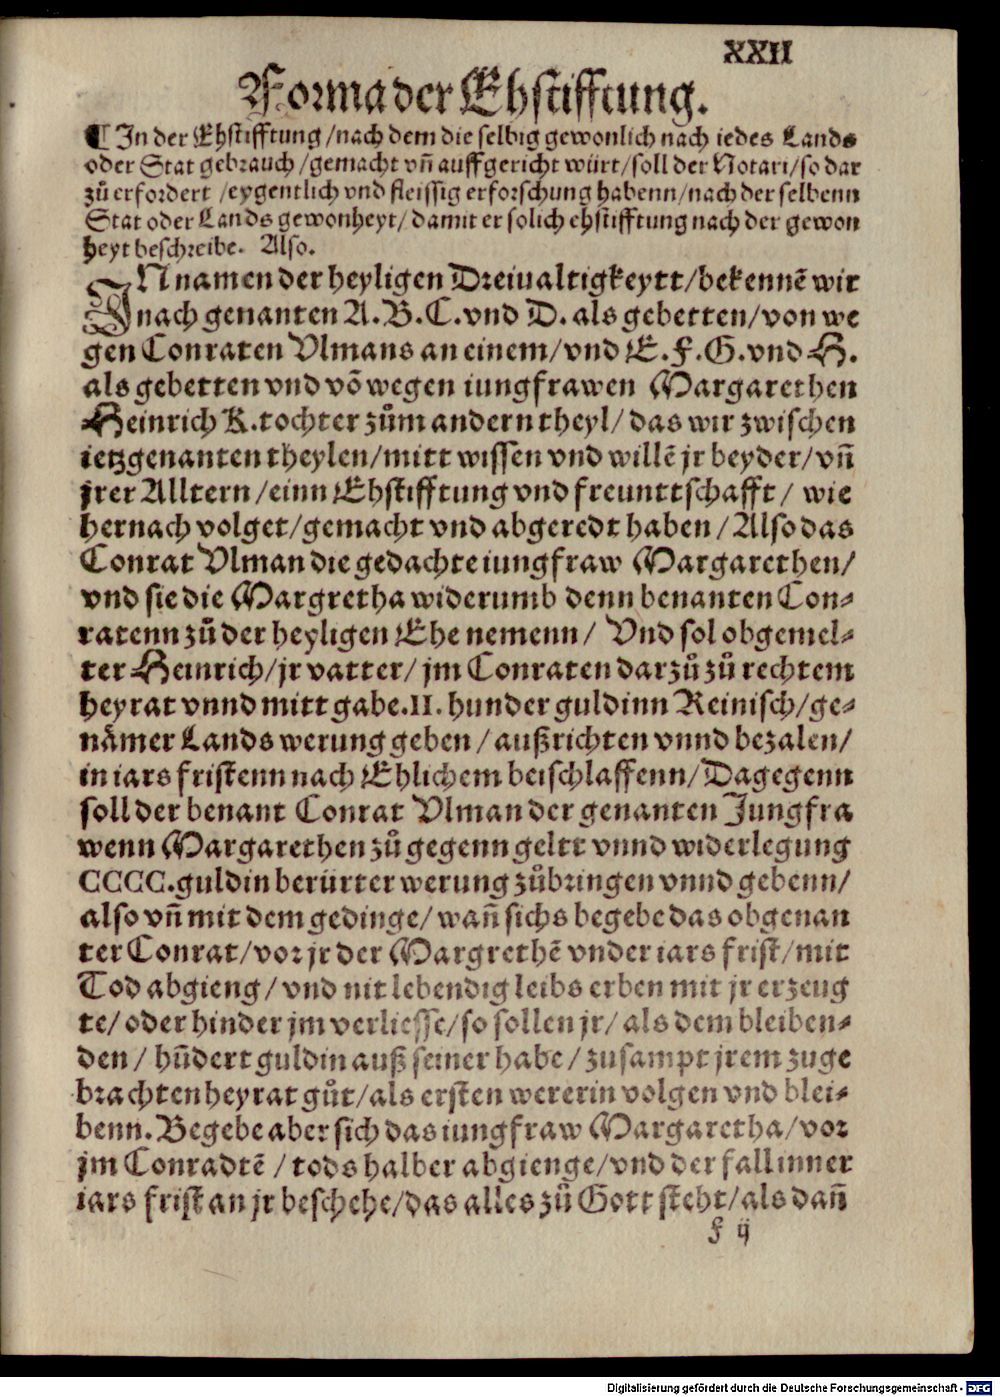 XXII
Forma der Ehstifftung.
¶ In der Ehstifftung/nach dem die selbig gewonlich nach iedes Lands
oder Stat gebrauch/gemacht vñ auffgericht würt/soll der Notari/so dar
zů erfordert/eygentlich vnd fleissig erforschung habenn/nach der selbenn
Stat oder Lands gewonheyt/damit er solich ehstifftung nach der gewon
heyt beschreibe. Also.
IN namen der heyligen Dreiualtigkeytt/bekennẽ wir
nach genanten A.B.C.vnd D.als gebetten/von we
gen Conraten Vlmans an einem/vnd E.F.G.vnd H.
als gebetten vnd võ wegen iungfrawen Margarethen
Heinrich K.tochter zům andern theyl/das wir zwischen
ietzgenanten theylen/mitt wissen vnd willẽ jr beyder/vñ
jrer Alltern/einn Ehstifftung vnd freunttschafft/ wie
hernach volget/gemacht vnd abgeredt haben/Also das
Conrat Vlman die gedachte iungfraw Margarethen/
vnd sie die Margretha widerumb denn benanten Con⸗
ratenn zů der heyligen Ehe nemenn/ Vnd sol obgemel⸗
ter Heinrich/jr vatter/jm Conraten darzů zů rechtem
heyrat vnnd mitt gabe.II.hunder guldinn Reinisch/ge⸗
nämer Lands werung geben/außrichten vnnd bezalen/
in iars fristenn nach Ehlichem beischlaffenn/Dagegenn
soll der benant Conrat Vlman der genanten Jungfra
wenn Margarethen zů gegenn geltt vnnd widerlegung
CCCC.guldin berürter werung zůbringen vnnd gebenn/
also vñ mit dem gedinge/wañ sichs begebe das obgenan
ter Conrat/vor jr der Margrethẽ vnder iars frist/mit
Tod abgieng/vnd nit lebendig leibs erben mit jr erzeug
te/oder hinder jm verliesse/so sollen jr/als dem bleiben⸗
den/hũdert guldin auß seiner habe/zusampt jrem zuge
brachten heyrat gůt/als ersten wererin volgen vnd blei⸗
benn. Begebe aber sich das iungfraw Margaretha/vor
jm Conradtẽ/tods halber abgienge/vnd der fall inner
iars frist an jr beschehe/das alles zů Gott steht/als dañ
f ij
Digitalisierung gefördert durch die Deutsche Forschungsgemeinschaft - DFG